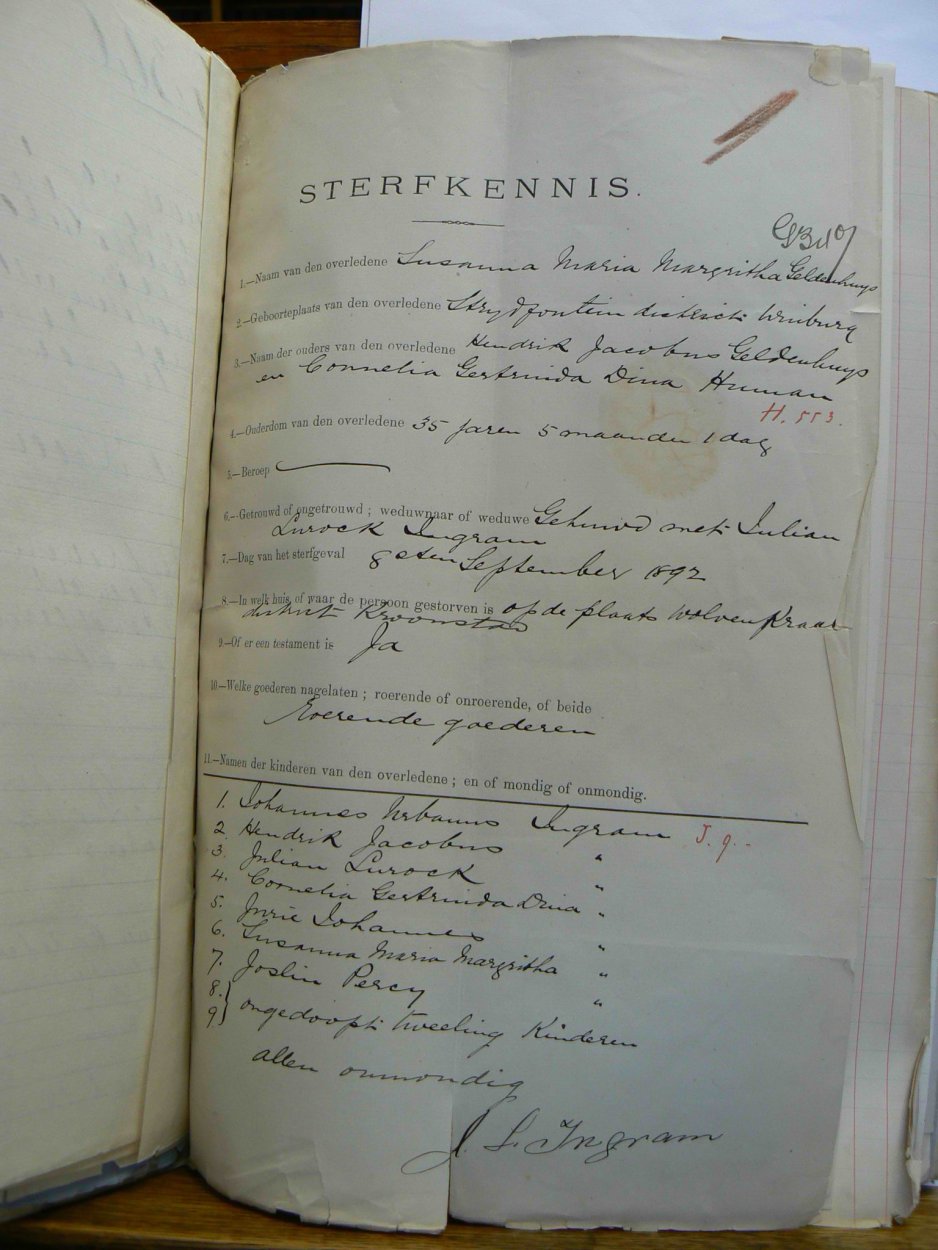 STERFKENNIS.
1.—Naam van den overledene Susanna Maria Margritha Geldenhuys
2.—Geboorteplaats van den overledene Strydfontein district Winburg
3.—Naam der ouders van den overledene Hendrik Jacobus Geldenhuys
en Cornelia Gertruida Dina Human
H. 553.
4.—Ouderdom van den overledene 35 jaren 5 maanden 1 dag
5.—Beroep
6.—Getrouwd of ongetrouwd; weduwnaar of weduwe Gehuwd met Julian
Lurock Ingram
7.—Dag van het sterfgeval 8sten September 1892
8.—In welk huis, of waar de persoon gestorven is op de plaats Wolvenkraar
district Kroonstad
9.—Of er een testament is Ja
10.—Welke goederen nagelaten; roerende of onroerende, of beide
Roerende goederen
11.—Namen der kinderen van den overledene; en of mondig of onmondig.
1. Johannes Urbanus Ingram J. 9.
2. Hendrik Jacobus "
3. Julian Lurock "
4. Cornelia Gertruida Dina "
5. Jurie Johannes "
6. Susanna Maria Margritha "
7. Joslin Percy "
8.
9 } ongedoopt tweeling Kinderen
allen onmondig
J. L. Ingram